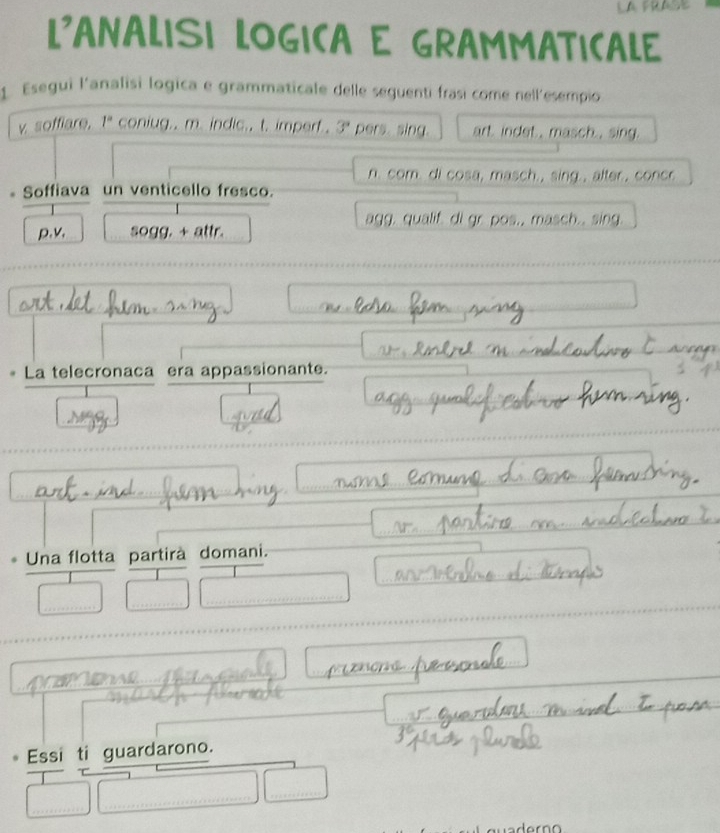 LA FRASE
L'ANALISI LOGICA E GRAMMATICALE
1 Esegui l'analisi logica e grammaticale delle seguenti frasi come nell'esempio
v. soffiare, 1ª coniug., m. indic., t. imperf., 3ª pers. sing.
art. indet., masch., sing.
n. com. di cosa, masch., sing., alter., concr.
Soffiava un venticello fresco.
agg. qualif. di gr. pos., masch., sing.
p.v.
sogg. + attr.
art. det fem. sing
n. cosa fem sing
v. essere m indicativo t
La telecronaca era appassionante.
agg. qualificativo fem sing.
sogg
art. ind. fem sing
nome comune di cosa fem sing.
v. partire m. indicativo t
Una flotta partirà domani.
avverbio di tempo
pronome personale
masch plurale
pronome personale
v guardare m ind t pass
3ª pers plurale
Essi ti guardarono.
quaderno